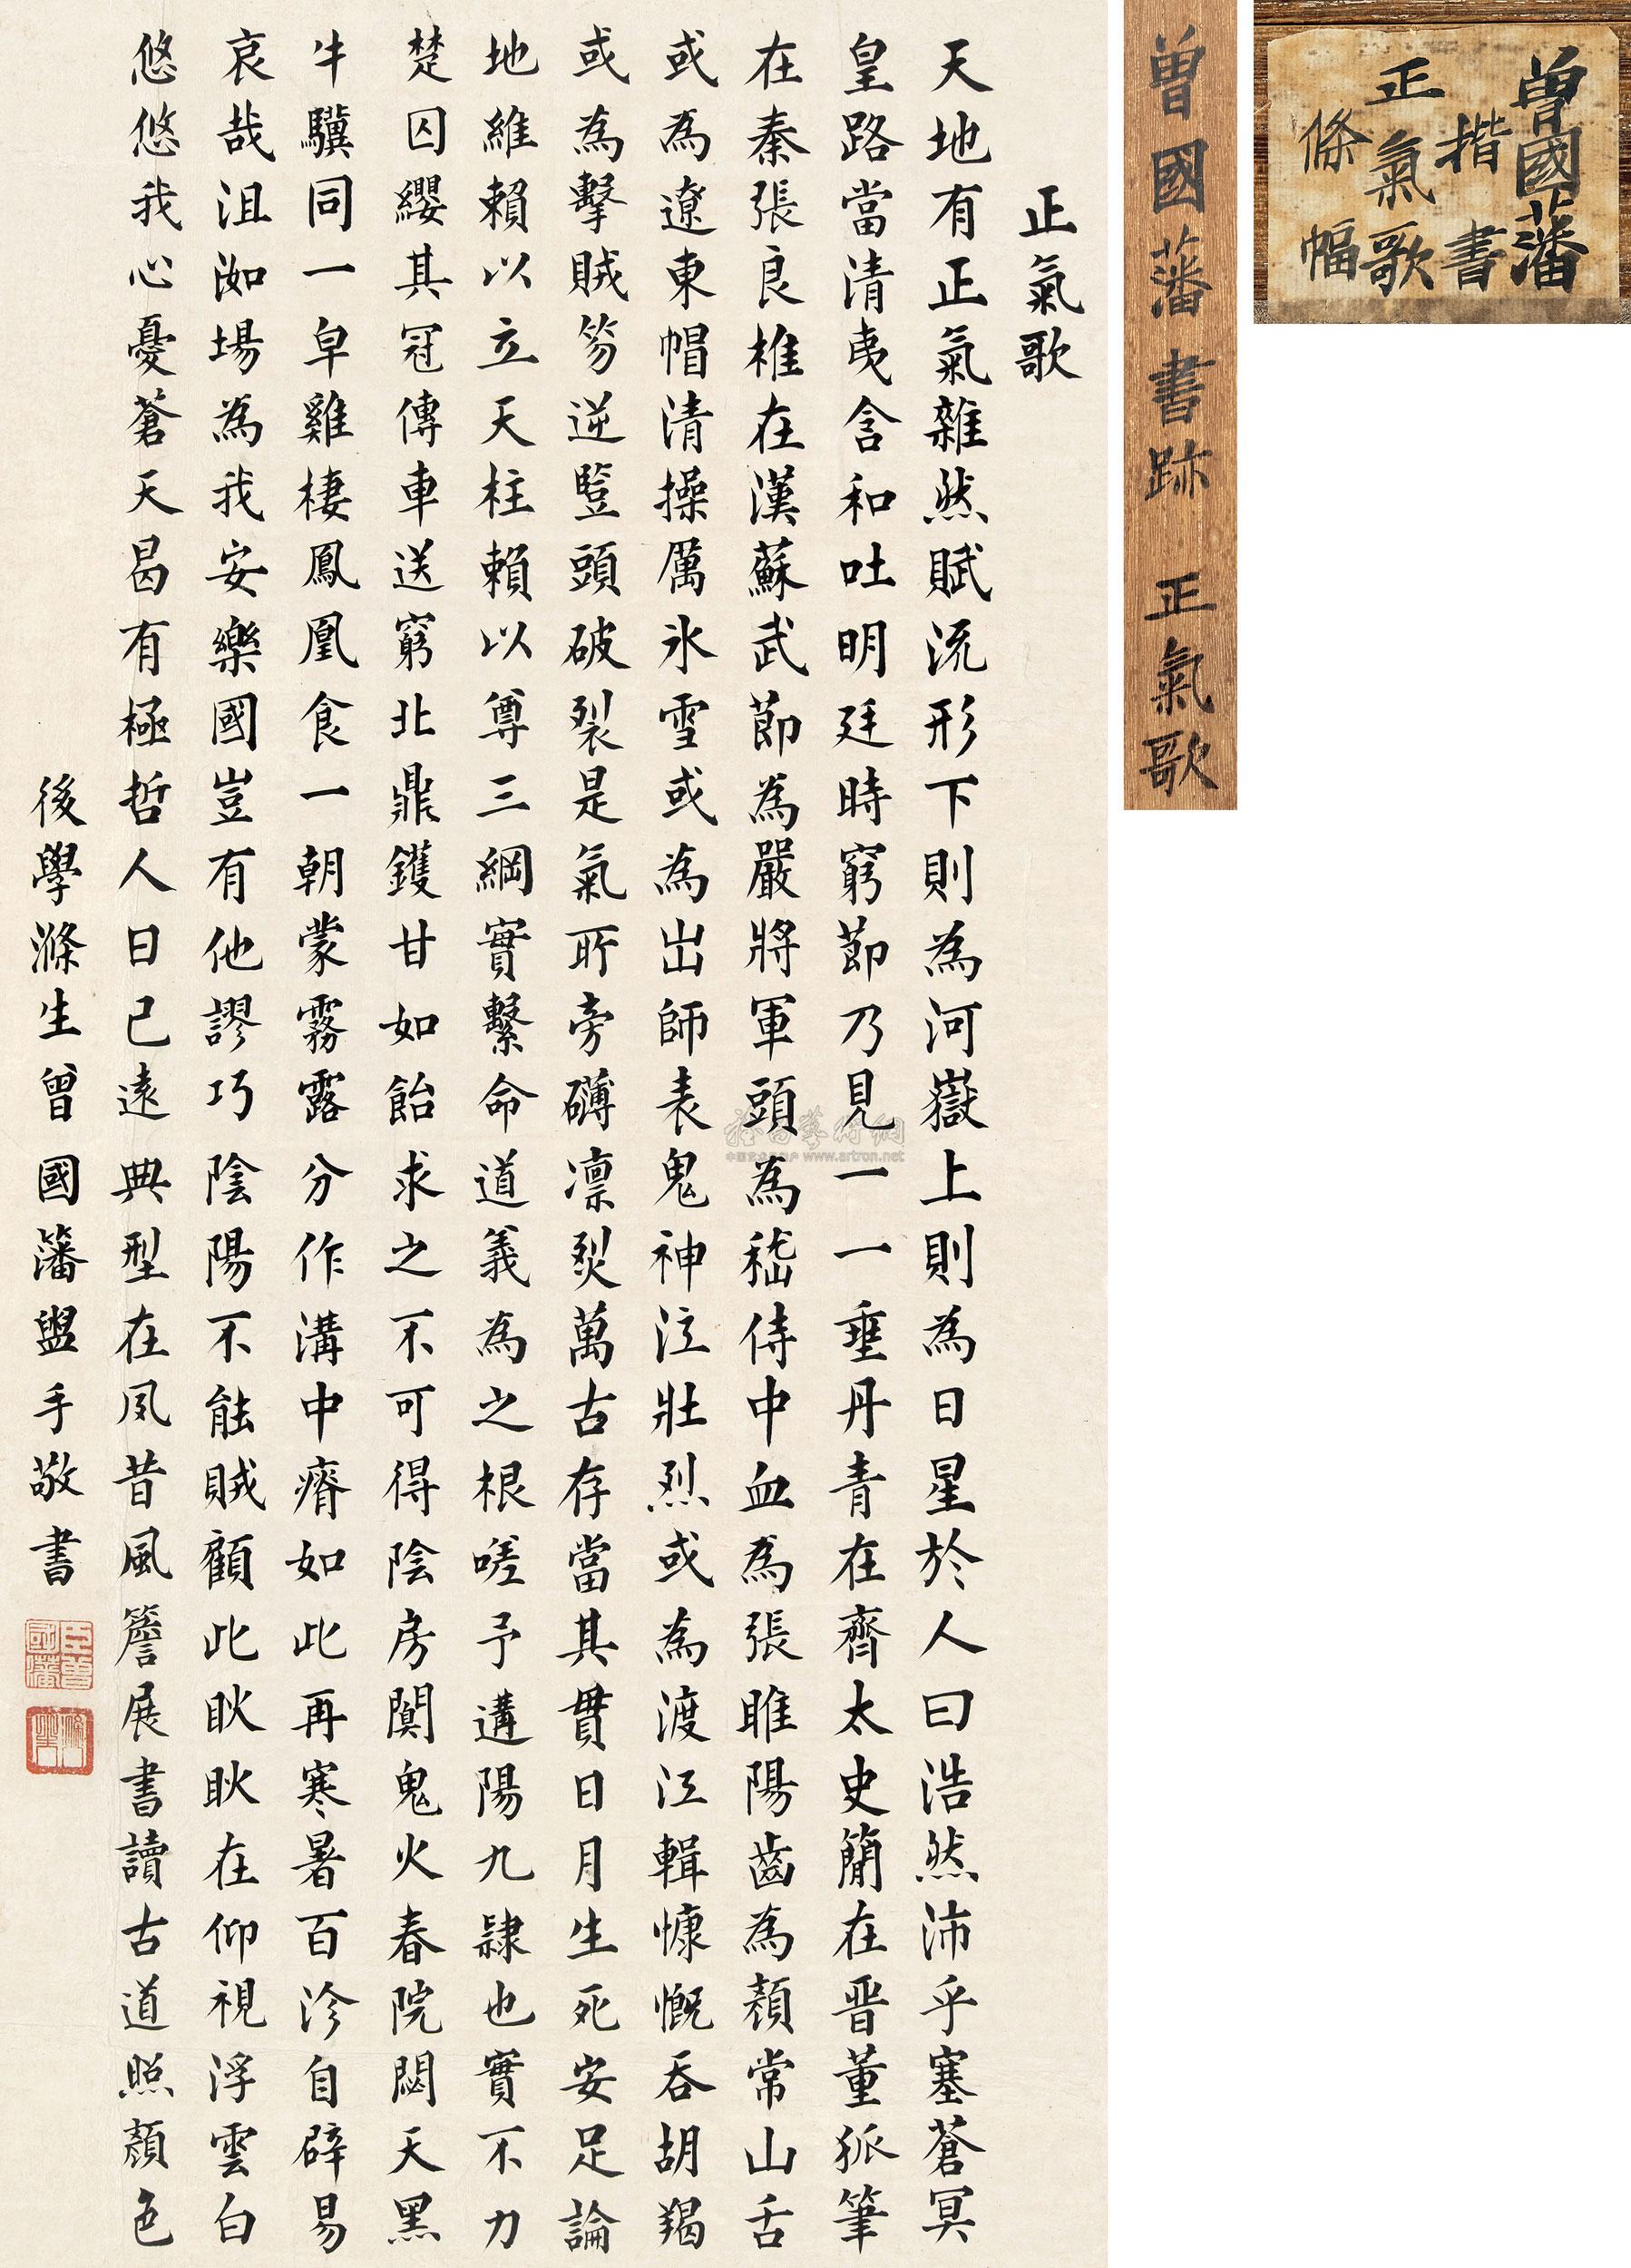 正氣歌
天地有正氣雜然賦流形下則為河嶽上則為日星於人曰浩然沛乎塞蒼冥
皇路當清夷含和吐明廷時窮節乃見一一垂丹青在齊太史簡在晉董狐筆
在秦張良椎在漢蘇武節為嚴將軍頭為嵇侍中血為張睢陽齒為顏常山舌
或為遼東帽清操厲氷雪或為出師表鬼神泣壯烈或為渡江輯慷慨吞胡羯
或為擊賊笏逆豎頭破裂是氣所旁礴凛烈萬古存當其貫日月生死安足論
地維賴以立天柱賴以尊三綱實繫命道義為之根嗟予遘陽九隸也實不力
楚囚纓其冠傳車送窮北鼎鑊甘如飴求之不可得陰房闃鬼火春院閟天黑
牛驥同一皁雞棲鳳凰食一朝蒙霧露分作溝中瘠如此再寒暑百沴自辟易
哀哉沮洳場為我安樂國豈有他謬巧陰陽不能賊顧此耿耿在仰視浮雲白
悠悠我心憂蒼天曷有極哲人日已遠典型在夙昔風簷展書讀古道照顏色
後學滌生曾國藩盥手敬書
臣曾國藩
滌生
曾國藩書跡 正氣歌
曾國藩
楷書
正氣歌
條幅
雅昌藝術網
www.artron.net